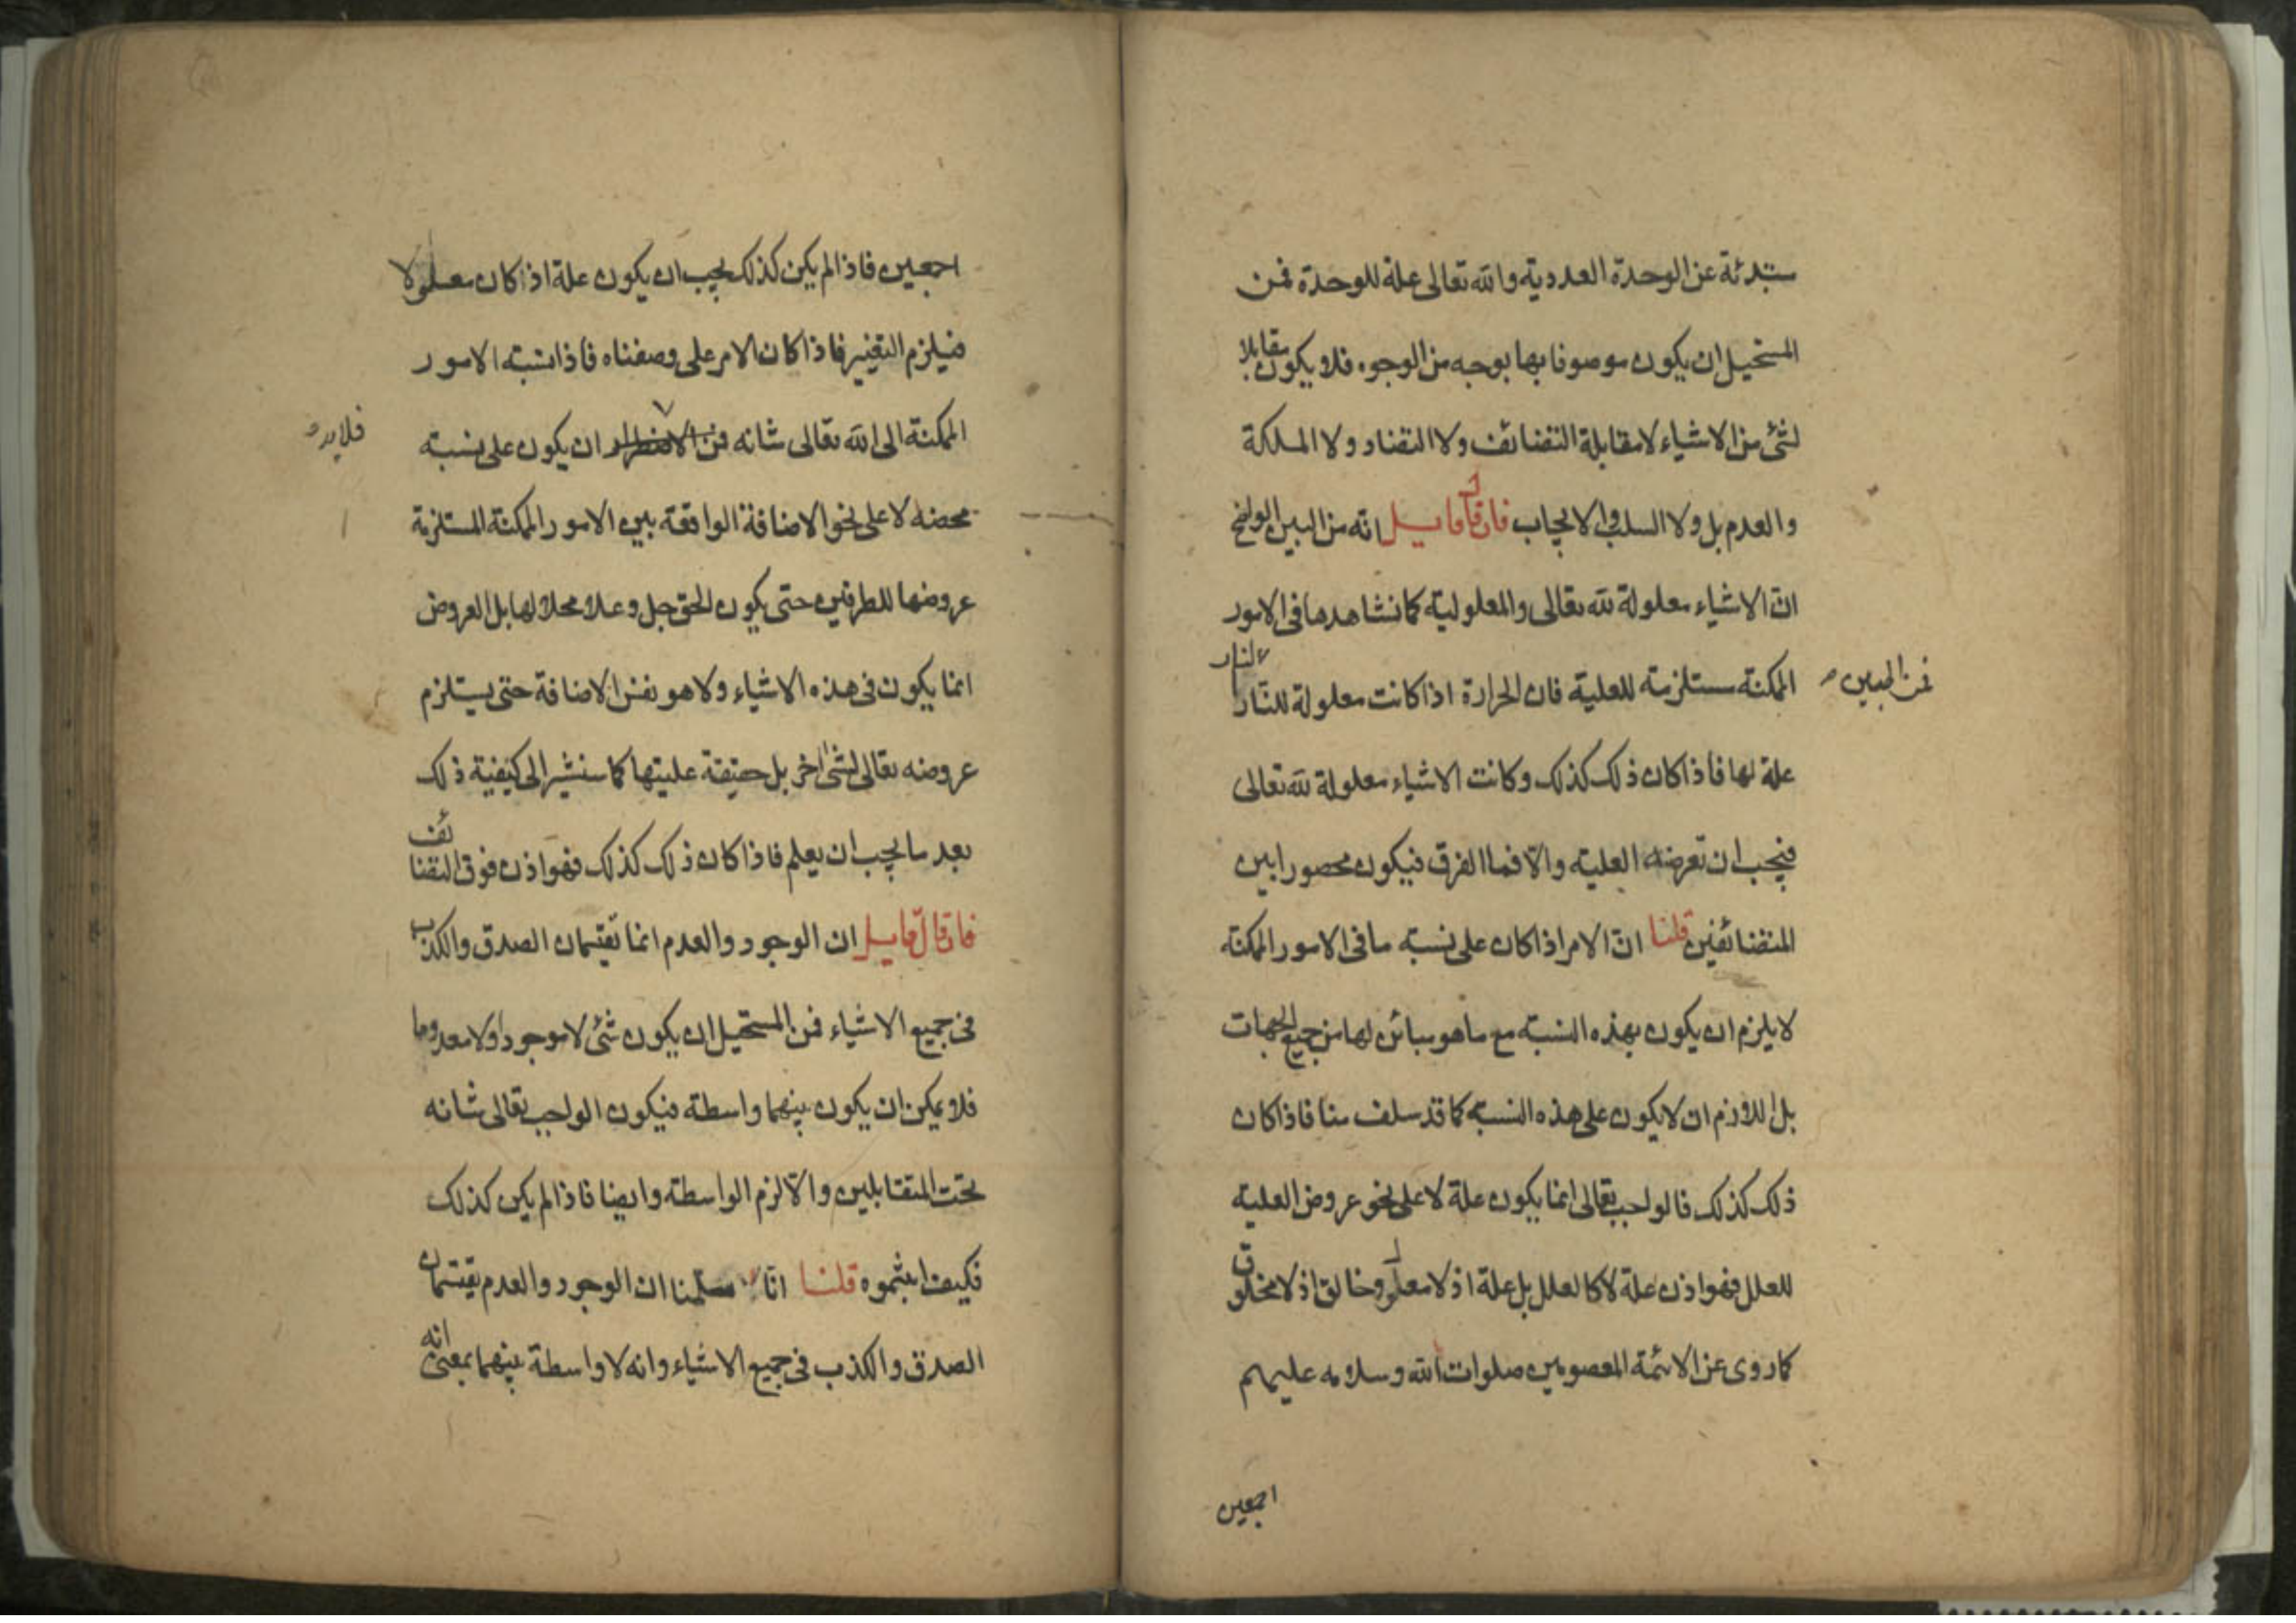 مبتدئة عن الوحدة العددية والله تعالى علة للوحدة فمن
المستحيل ان يكون موصوفا بها بوجه من الوجوه فلا يكون مقابلا
لشئ من الاشياء لا مقابلة التضائف ولا التضاد ولا الملكة
والعدم بل ولا السلب والايجاب فان قال قايل انه من البين الواضح
ان الاشياء معلولة لله تعالى والمعلولية كما نشاهدها فى الامور
الممكنة مستلزمة للعلية فان الحرارة اذا كانت معلولة للنار فالنار
فمن البين
علة لها فاذا كان ذلك كذلك وكانت الاشياء معلولة لله تعالى
فيجب ان تعرضه العلية والا فما الفرق فيكون محصورا بين
المتضائفين قلنا ان الامر اذا كان على نسبة ما فى الامور الممكنة
لا يلزم ان يكون بهذه النسبة مع ما هو مبائن لها من جميع الجهات
بل اللازم ان لا يكون على هذه النسبة كما قد سلف منا فاذا كان
ذلك كذلك فالواجب تعالى انما يكون علة لا على نحو عروض العلية
للعلل فهو اذن علة لا كالعلل بل علة اذ لا معلول وخالق اذ لا مخلوق
كما روى عن الائمة المعصومين صلوات الله وسلامه عليهم
اجمعين
اجمعين فاذا لم يكن كذلك يجب ان يكون علة اذا كان معلولا
فيلزم التغير فاذا كان الامر على وصفناه فاذا نسبة الامور
الممكنة الى الله تعالى شانه فمن الاضطرار ان يكون على نسبة
فلا بد
محضه لا على نحو الاضافة الواقعة بين الامور الممكنة المستلزمة
عروضها للطرفين حتى يكون الحق جل وعلا محلا لها بل العروض
انما يكون فى هذه الاشياء ولا هو نفس الاضافة حتى يستلزم
عروضه تعالى لشئ اخر بل حقيقة عليتها كما سنشير الى كيفية ذلك
بعد ما يجب ان يعلم فاذا كان ذلك كذلك فهو اذن فوق التضائف
فان قال قايل ان الوجود والعدم انما تقتسمان الصدق والكذب
فى جميع الاشياء فمن المستحيل ان يكون شئ لا موجودا ولا معدوما
فلا يمكن ان يكون بينهما واسطة فيكون الواجب تعالى شانه
تحت المتقابلين والا لزم الواسطة وايضا فاذا لم يكن كذلك
فكيف اثبتموه قلنا انا سلمنا ان الوجود والعدم يقتسمان
الصدق والكذب فى جميع الاشياء وانه لا واسطة بينهما بمعنى انه